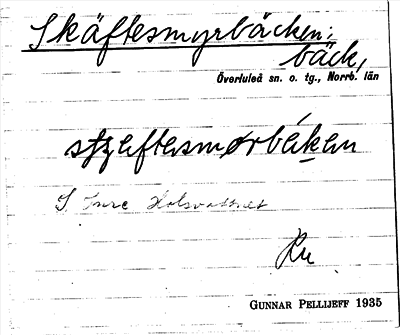 Skäftesmyrbäcken;
bäck,
Överluleå sn. o. tg., Norrb. län
S. Inre Holsvattnet
GUNNAR PELLIJEFF 1935